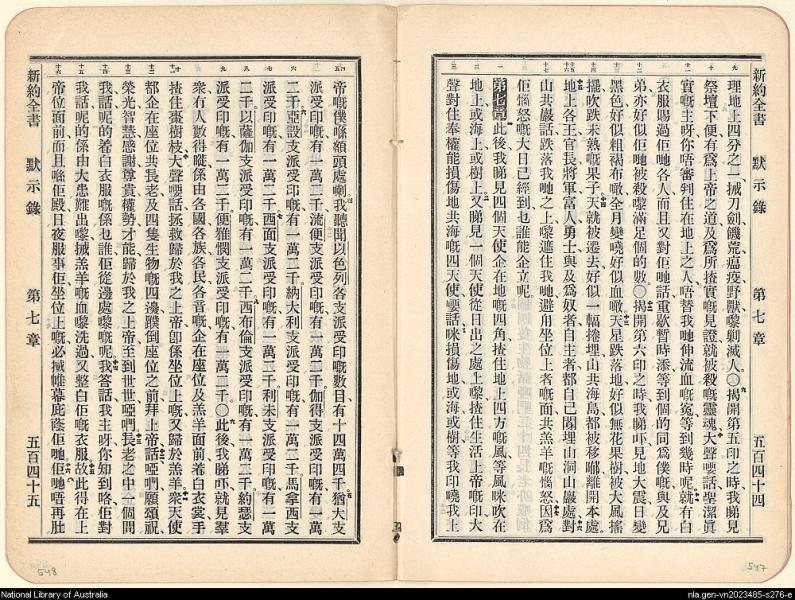 新約全書　默示錄　第七章　五百四十四
理地上四分之一搣刀劍饑荒瘟疫野獸嚟剿滅人〇揭開第五印之時我睇見
祭壇下便有爲上帝之道及爲所揸實嘅見證就被殺嘅靈魂大聲嗌話聖潔眞
實嘅主呀你唔審判住在地上之人唔替我哋伸流血嘅冤等到幾時呢就有白
衣服賜過佢哋各人而且又對佢哋話重歇暫時添等到個的同爲僕嘅與及兄
弟亦好似佢哋被殺嚟滿足個的數〇揭開第六印之時我睇吓見地大震日變
黑色好似粗褐布噉全月變嘵好似血噉天星跌落地好似無花果樹被大風搖
擺吹跌未熟嘅果子天就被遷去好似一幅捲埋山共海島都被移郁離開本處
地上各王官長將軍富人勇士與及爲奴者自主者都自己埋山洞山巖處對
山共巖話跌落我哋之上嚟遮住我哋避用坐位上者嘅面共羔羊嘅惱怒因爲
佢惱怒嘅大日已經到乜誰能企立呢
第七章 此後我睇見四個天使企在地嘅四角揸住地上四方嘅風等風咪吹在
地上或海上或樹上又睇見一個天使從日出之處上嚟揸住生活上帝嘅印大
聲對住奉權能損傷地共海嘅四天使嗌話咪損傷地或海或樹等我印嘵我上
帝嘅僕喺額頭處喇我聽聞以色列各支派受印嘅數目有十四萬四千猶大支
派受印嘅有一萬二千流便支派受印嘅有一萬二千伽得支派受印嘅有一萬
二千亞設支派受印嘅有一萬二千納大利支派受印嘅有一萬二千馬拿西支
派受印嘅有一萬二千西面支派受印嘅有一萬二千利未支派受印嘅有一萬
二千以薩伽支派受印嘅有一萬二千西布倫支派受印嘅有一萬二千約瑟支
派受印嘅有一萬二千便雅憫支派受印嘅有一萬二千〇此後我睇吓就見羣
衆有人數得嘅係由各國各族各民各音嘅企在座位及羔羊面前着白衣裳手
揸住棗樹枝大聲嗌話拯救歸於我之上帝卽係坐位上嘅又歸於羔羊衆天使
都企在座位共長老及四隻生物嘅四邊躀倒座位之前拜上帝話啞們願頌祝
榮光智慧感謝尊貴權勢才能歸於我之上帝至到世世啞們長老之中一個問
我話呢的着白衣服嘅係乜誰佢從邊處嚟嘅呢我答話我主呀你知到咯佢對
我話呢的係由大患難出嚟搣羔羊嘅血嚟洗過又整白佢嘅衣服故此得在上
帝位面前而且喺佢殿日夜服事佢坐位上嘅必搣帷幕庇蔭佢哋佢哋唔再肚
新約全書　默示錄　第七章　五百四十五
548
547
National Library of Australia
nla.gen-vn2023485-s276-e